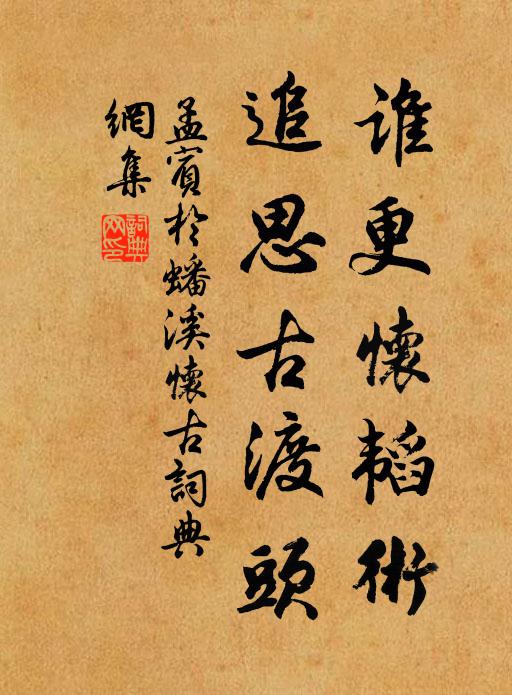 誰更懷韜術
追思古渡頭
孟賓於蟠溪懷古詞典
網集
詞典
网印